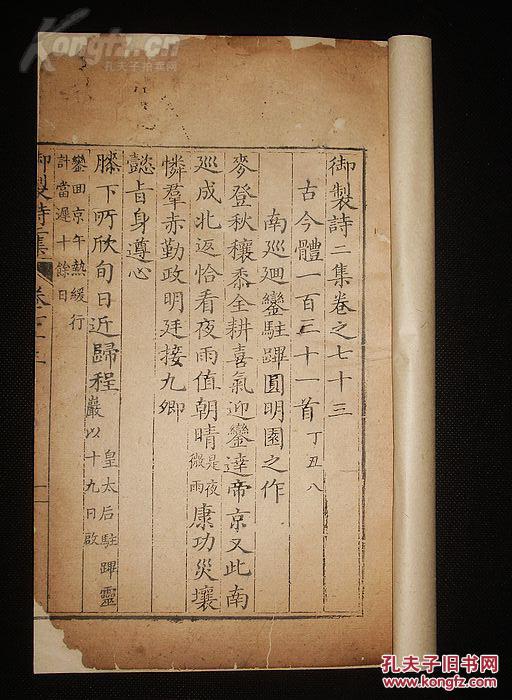 Kongfz.cn
孔夫子拍卖网
御製詩二集卷之七十三
古今體一百三十一首 丁丑八
南廵廻鑾駐蹕圓明園之作
麥登秋穰黍全耕喜氣迎鑾達帝京又此南
廵成北返恰看夜雨值朝晴 是夜微雨 康功災壤
憐羣赤勤政明廷接九卿
懿旨身遵心
膝下所欣旬日近歸程 皇太后駐蹕靈巖以十九日啟
鑾回京午熱緩行
計當遲十餘日
御製詩二集 卷
孔夫子旧书网
www.kongfz.com